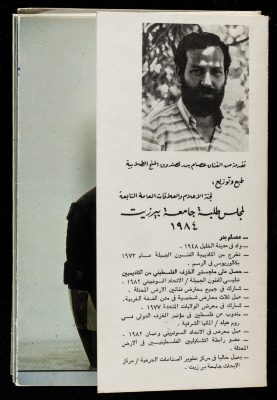 تقدمة من الفنان عصام بدر لصندوق المنح الطلابية
طبع وتوزيع:
لجنة الاعلام والعلاقات العامة التابعة
لمجلس طلبة جامعة بيرزيت
١٩٨٤
ـ عصام بدر
ـ ولد في مدينة الخليل ١٩٤٨ .
ـ تخرج من اكاديمية الفنون الجميلة بغداد ١٩٧٣
بكالوريوس في الرسم .
ـ حصل على ماجستير الخزف الفلسطيني من اكاديمية
تبليسي للفنون الجميلة / الاتحاد السوفييتي ١٩٨٢ .
ـ شارك في جميع معارض فنانين الارض المحتلة .
ـ عمل ثلاث معارض شخصية في مدن الضفة الغربية .
ـ شارك في معرض الولايات المتحدة ١٩٧٧ .
ـ مندوب عن فلسطين في مؤتمر الخزف الدولي في
روم هيلد / المانيا الشرقية .
ـ عمل معرض في الاتحاد السوفييتي وعمان ١٩٨٢ .
ـ عضو رابطة التشكيليين الفلسطينيين في الارض
المحتلة .
ـ يعمل حاليا في مركز تطوير الصناعات الحرفية / مركز
الابحاث جامعة بير زيت .